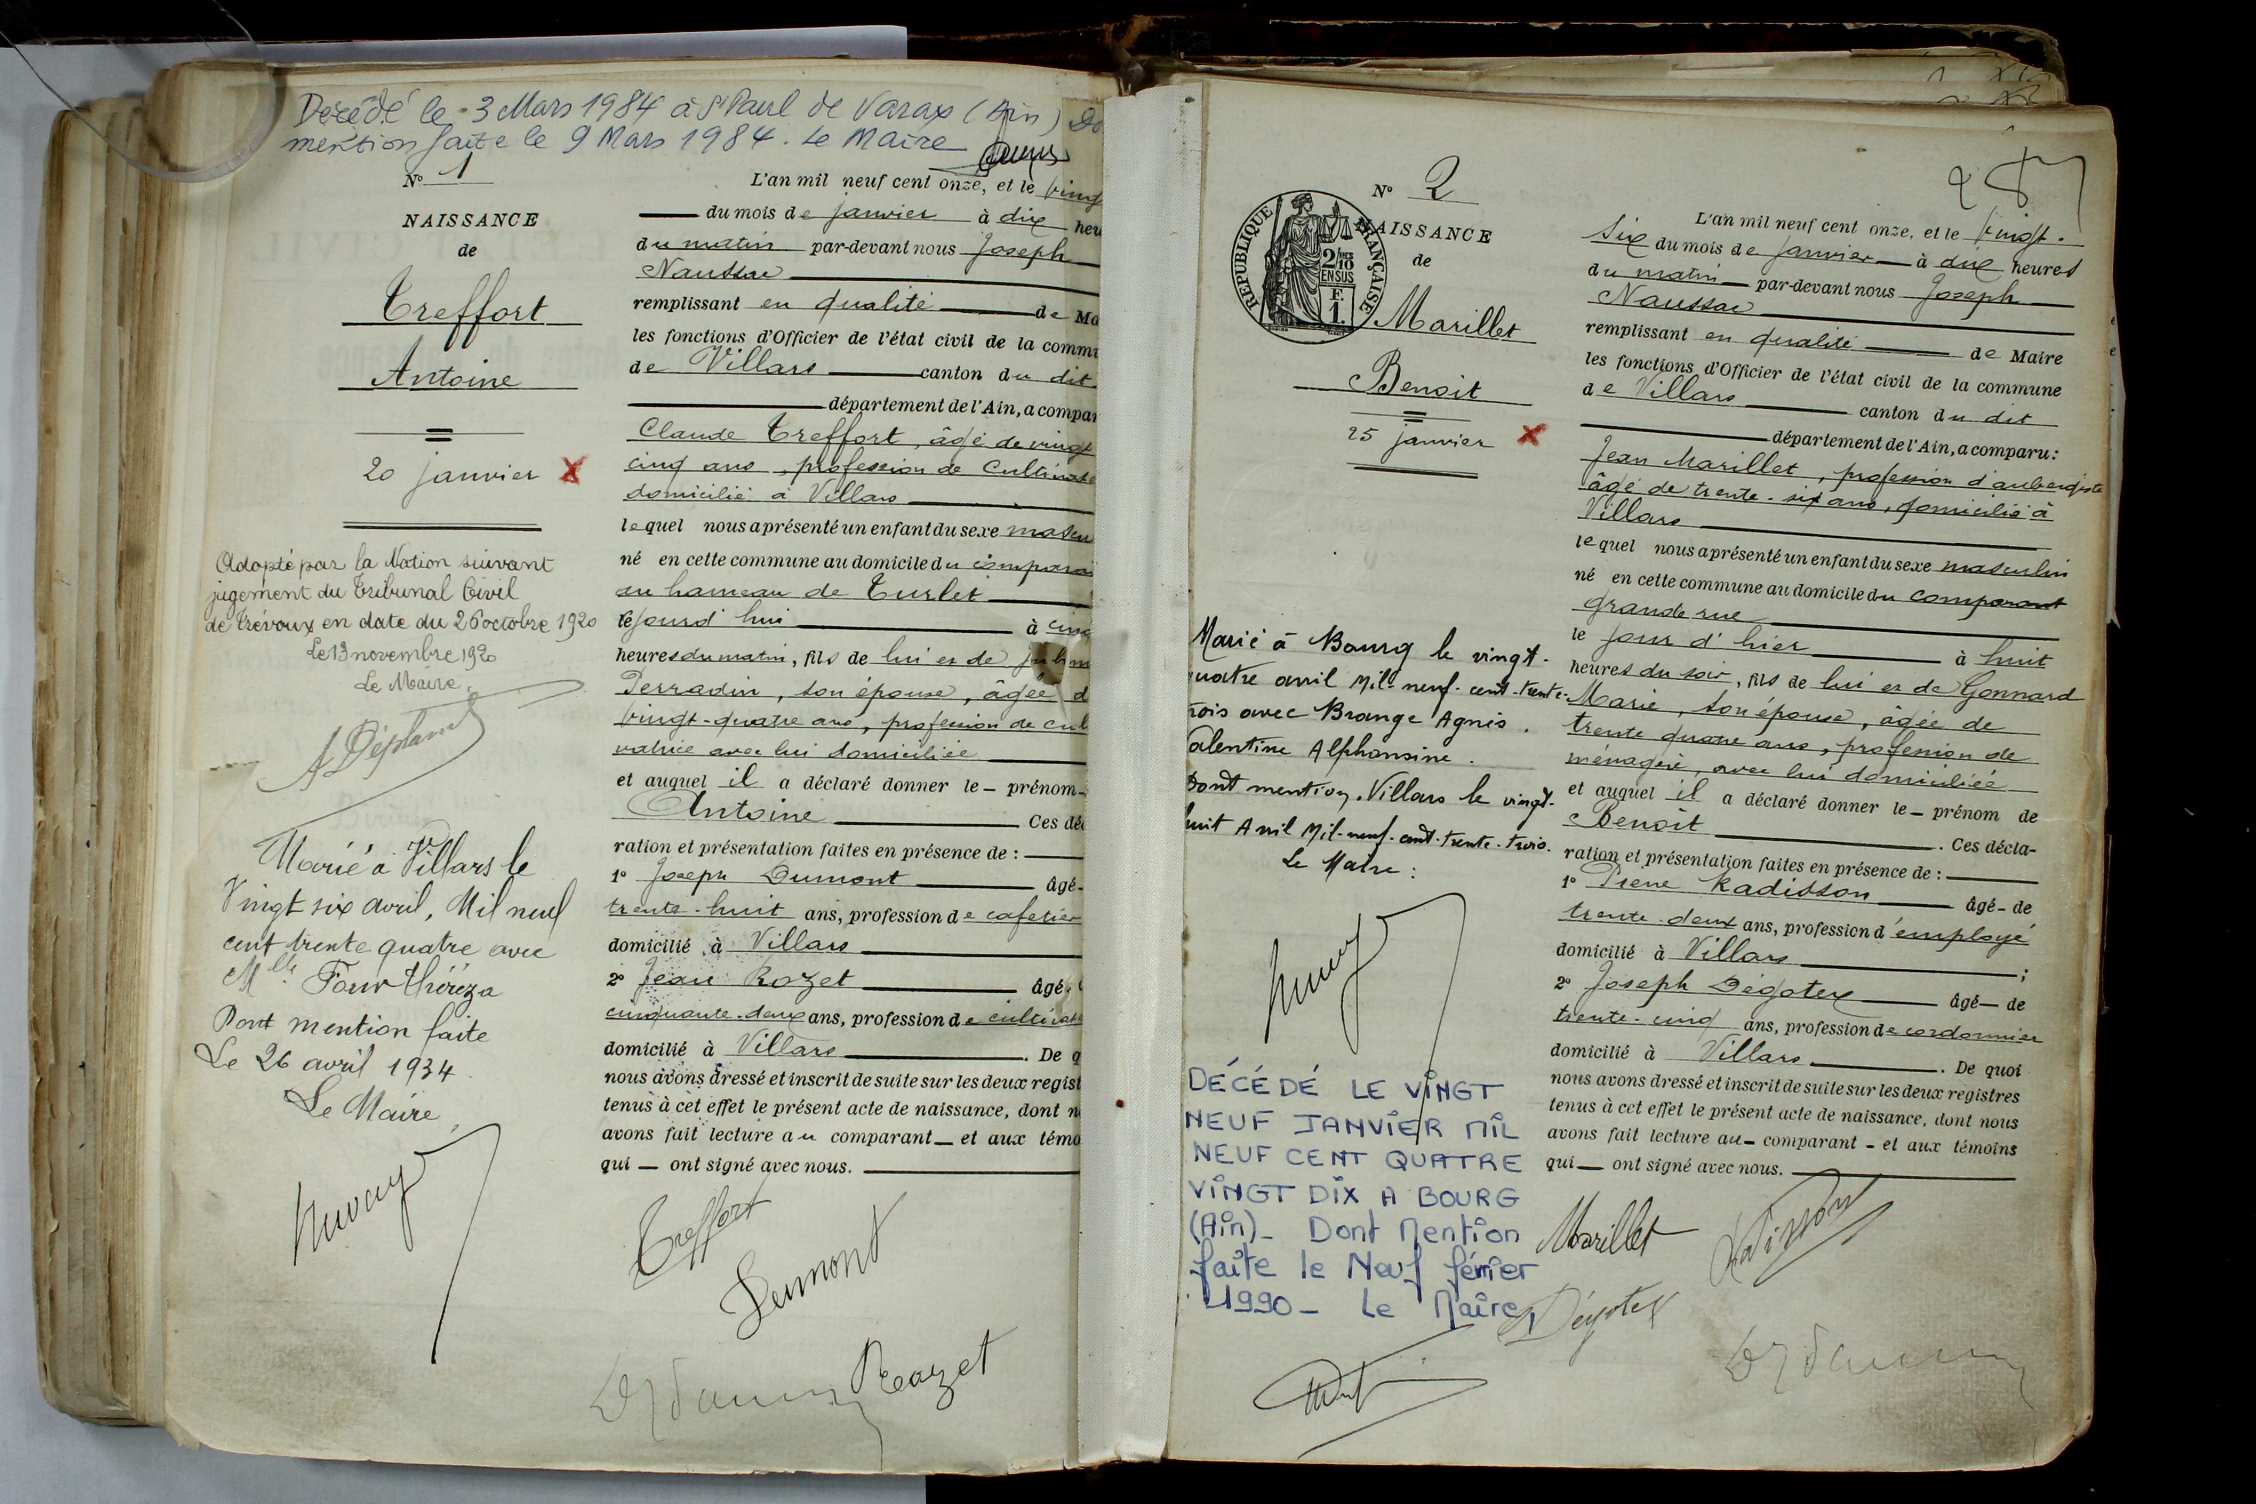 Décédé le 3 Mars 1984 à St Paul de Varax (Ain) Do
mention faite le 9 Mars 1984. Le Maire
N° 1
NAISSANCE
de
Treffort
Antoine
20 janvier X
Adopté par la Nation suivant
jugement du Tribunal Civil
de Trévoux en date du 26 octobre 1920
Le 13 novembre 1920
Le Maire,
Marié à Villars le
Vingt six avril, Mil neuf
cent trente quatre avec
Mlle Four Théréza
Dont mention faite
Le 26 avril 1934
Le Maire,
L'an mil neuf cent onze, et le vingt
du mois de janvier à dix heu
du matin par-devant nous Joseph
Naussac
remplissant en qualité de Ma
les fonctions d'Officier de l'état civil de la commu
de Villars canton du dit
département de l'Ain, a compar
Claude Treffort, âgé de vingt
cinq ans, profession de Cultivate
domicilié à Villars
lequel nous a présenté un enfant du sexe mascu
né en cette commune au domicile du compara
au hameau de Turlet
le jourd'hui à cinq
heures du matin, fils de lui et de
Perradin, son épouse, âgée d
vingt-quatre ans, profession de cul
vatrice avec lui domiciliée
et auquel il a déclaré donner le - prénom -
Antoine Ces déc
ration et présentation faites en présence de :
1° Joseph Dumont âgé -
trente-huit ans, profession de cafetier
domicilié à Villars
2° Jean Rozet âgé -
cinquante-deux ans, profession de cultivate
domicilié à Villars . De q
nous avons dressé et inscrit de suite sur les deux regist
tenus à cet effet le présent acte de naissance, dont n
avons fait lecture au comparant - et aux témo
qui - ont signé avec nous.
Treffort
Dumont
Rozet
N° 2
NAISSANCE
de
RÉPUBLIQUE FRANÇAISE
2/10
EN SUS
F.
1.
Marillet
Benoit
25 janvier X
Marié à Bourg le vingt-
quatre avril Mil-neuf-cent-trente-
rois avec Brange Agnès.
alentine Alphonsine.
Dont mention. Villars le vingt-
huit Avril Mil-neuf-cent-trente-trois.
Le Maire :
DÉCÉDÉ LE VINGT
NEUF JANVIER MIL
NEUF CENT QUATRE
VINGT DIX A BOURG
(Ain)_ Dont Mention
faite le Neuf février
1990_ Le Maire,
287
L'an mil neuf cent onze, et le vingt-
six du mois de janvier à dix heures
du matin par-devant nous Joseph
Naussac
remplissant en qualité de Maire
les fonctions d'Officier de l'état civil de la commune
de Villars canton du dit
département de l'Ain, a comparu :
Jean Marillet, profession d'aubergiste
âgé de trente-six ans, domicilié à
Villars
lequel nous a présenté un enfant du sexe masculin
né en cette commune au domicile du comparant
grande rue
le jour d'hier à huit
heures du soir, fils de lui et de Gonnard
Marie, son épouse, âgée de
trente quatre ans, profession de
ménagère, avec lui domiciliée
et auquel il a déclaré donner le - prénom de
Benoît . Ces décla-
ration et présentation faites en présence de :
1° Pierre Radisson âgé - de
trente-deux ans, profession d'employé
domicilié à Villars ;
2° Joseph Dégotex âgé - de
trente-cinq ans, profession de cordonnier
domicilié à Villars . De quoi
nous avons dressé et inscrit de suite sur les deux registres
tenus à cet effet le présent acte de naissance, dont nous
avons fait lecture au - comparant - et aux témoins
qui - ont signé avec nous.
Marillet
Radisson
Dégotex